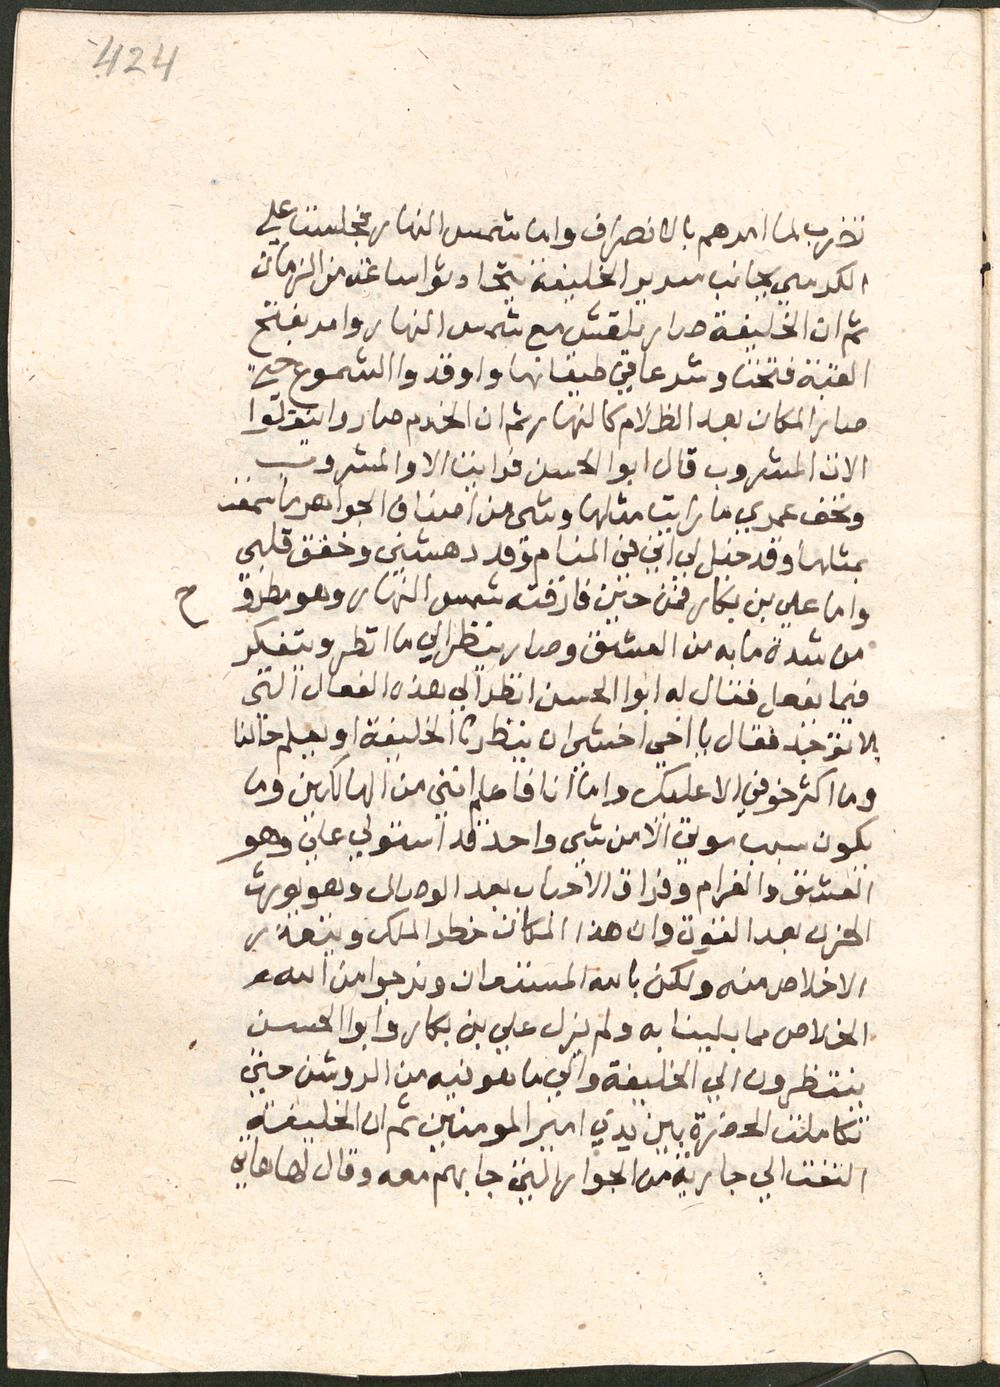 424
تضرب لما امرهم بالانصراف واما شمس النهار فجلست علي
الكرسي بجانب سرير الخليفة يتحادثوا ساعة من الزمان
ثم ان الخليفة صار يلقش مع شمس النهار وامر بفتح
القبة ففتحت وشرعا في طيقانها واوقدوا الشموع حتي
صار المكان بعد الظلام كالنهار ثم ان الخدم صاروا ينقلوا
الات المشروب قال ابوا الحسن فرايت الاو المشروب
وتحف عمري ما رايت مثلها وشي من اصناف الجواهر ما سمعت
بمثلها وقد خيل لي اني في المنام وقد دهشني وخفق قلبي
واما علي بن بكار فمن حين فارقته شمس النهار وهو مطروح
من شدة ما به من العشق وصار ينظر الي ما اتطر ويتفكر
فيما يفعل فقال له ابوا الحسن انظر الي هذه الفعال التي
لا توجد فقال يا اخي اخشي ان ينظرنا الخليفة او يعلم حالنا
وما اكثر خوفي الا عليك واما انا فاعلم انني من الهالكين وما
يكون سبب موتي الا من شي واحد قد استولي علي وهو
العشق والغرام وفراق الاحباب بعد الوصال وهو يورث
الحزن بعد القوة وان هذا المكان خطر الملك ويتعذر
الاخلاص منه ولكن بالله المستعان ونرجوا من الله
الخلاص مما بلينا به ولم يزل علي بن بكار وابوا الحسن
ينتظرون الي الخليفة والي ما هو فيه من الروشن حتي
تكاملت الحضرة بين يدي امير المومنين ثم ان الخليفة
التفت الي جارية من الجوار التي جا بهم معه وقال لها هاتي